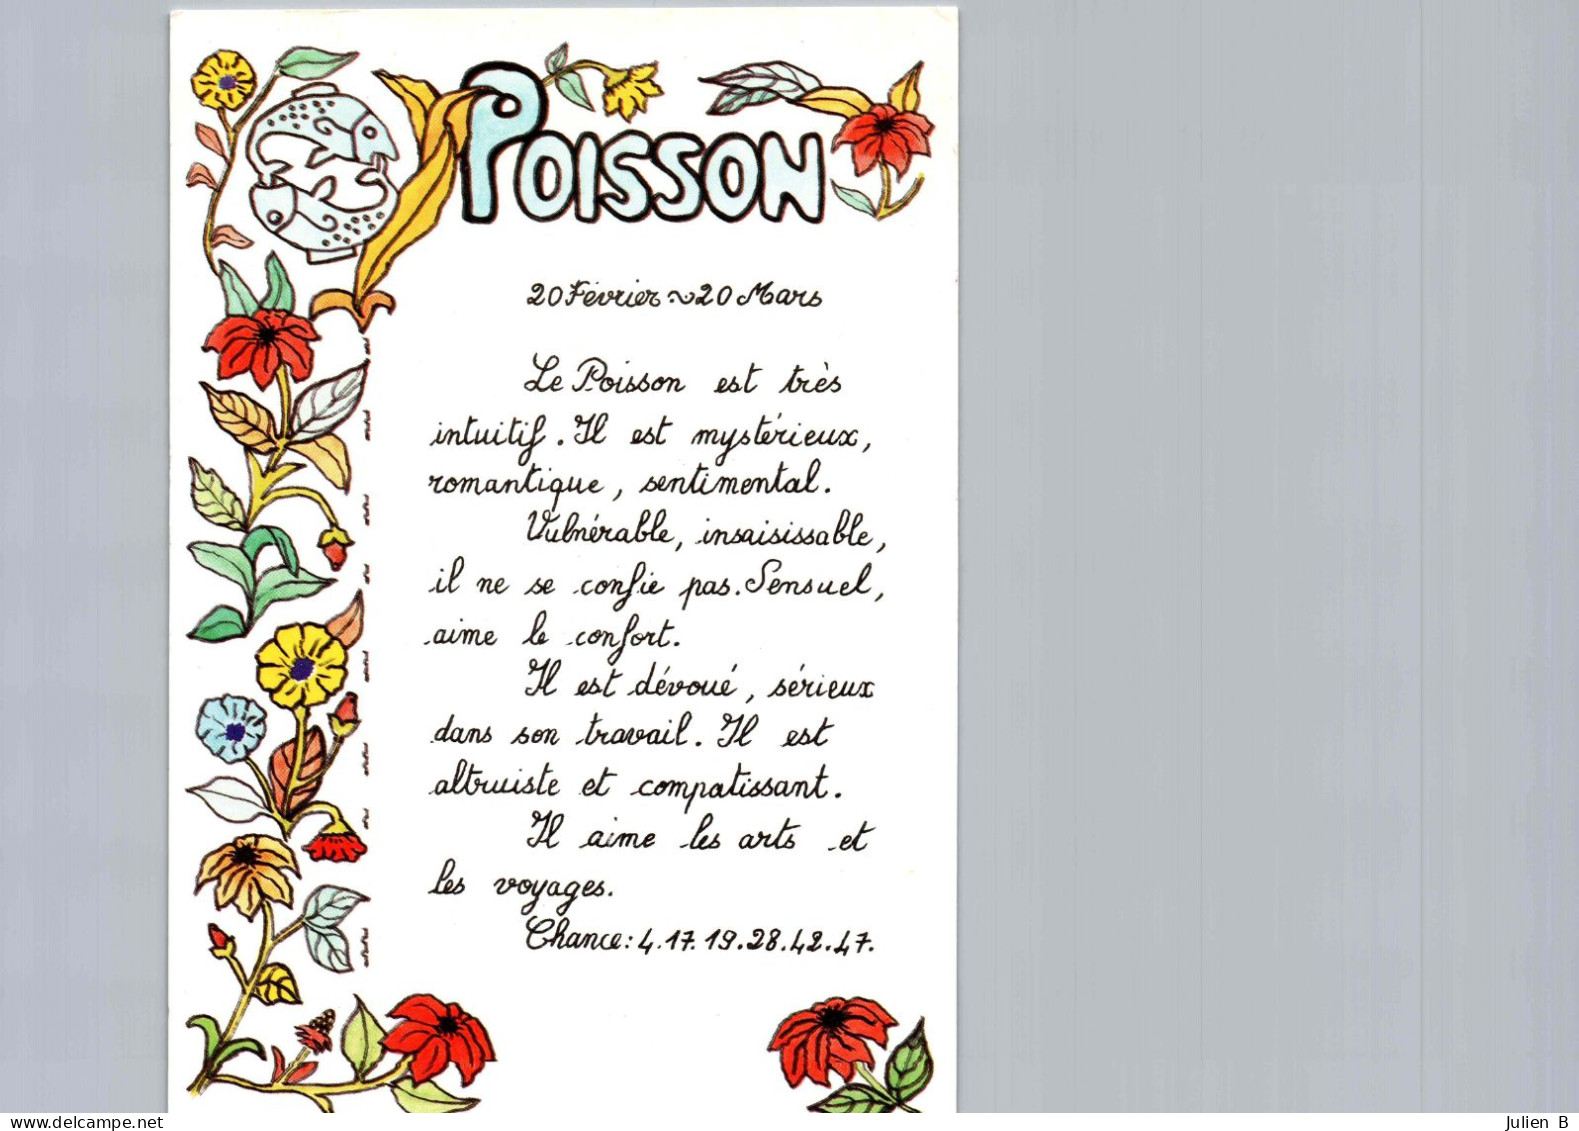 POISSON
20 Février ~ 20 Mars
Le Poisson est très
intuitif. Il est mystérieux,
romantique, sentimental.
Vulnérable, insaisissable,
il ne se confie pas. Sensuel,
aime le confort.
Il est dévoué, sérieux
dans son travail. Il est
altruiste et compatissant.
Il aime les arts et
les voyages.
Chance: 4.17.19.28.42.47.
www.delcampe.net
Julien B